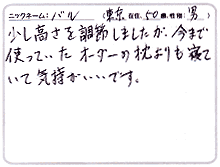 ニックネーム:バル (東京 在住、50歳、性別:男)
少し高さを調節しましたが、今まで
使っていたオーダーの枕よりも寝て
いて気持がいいです。